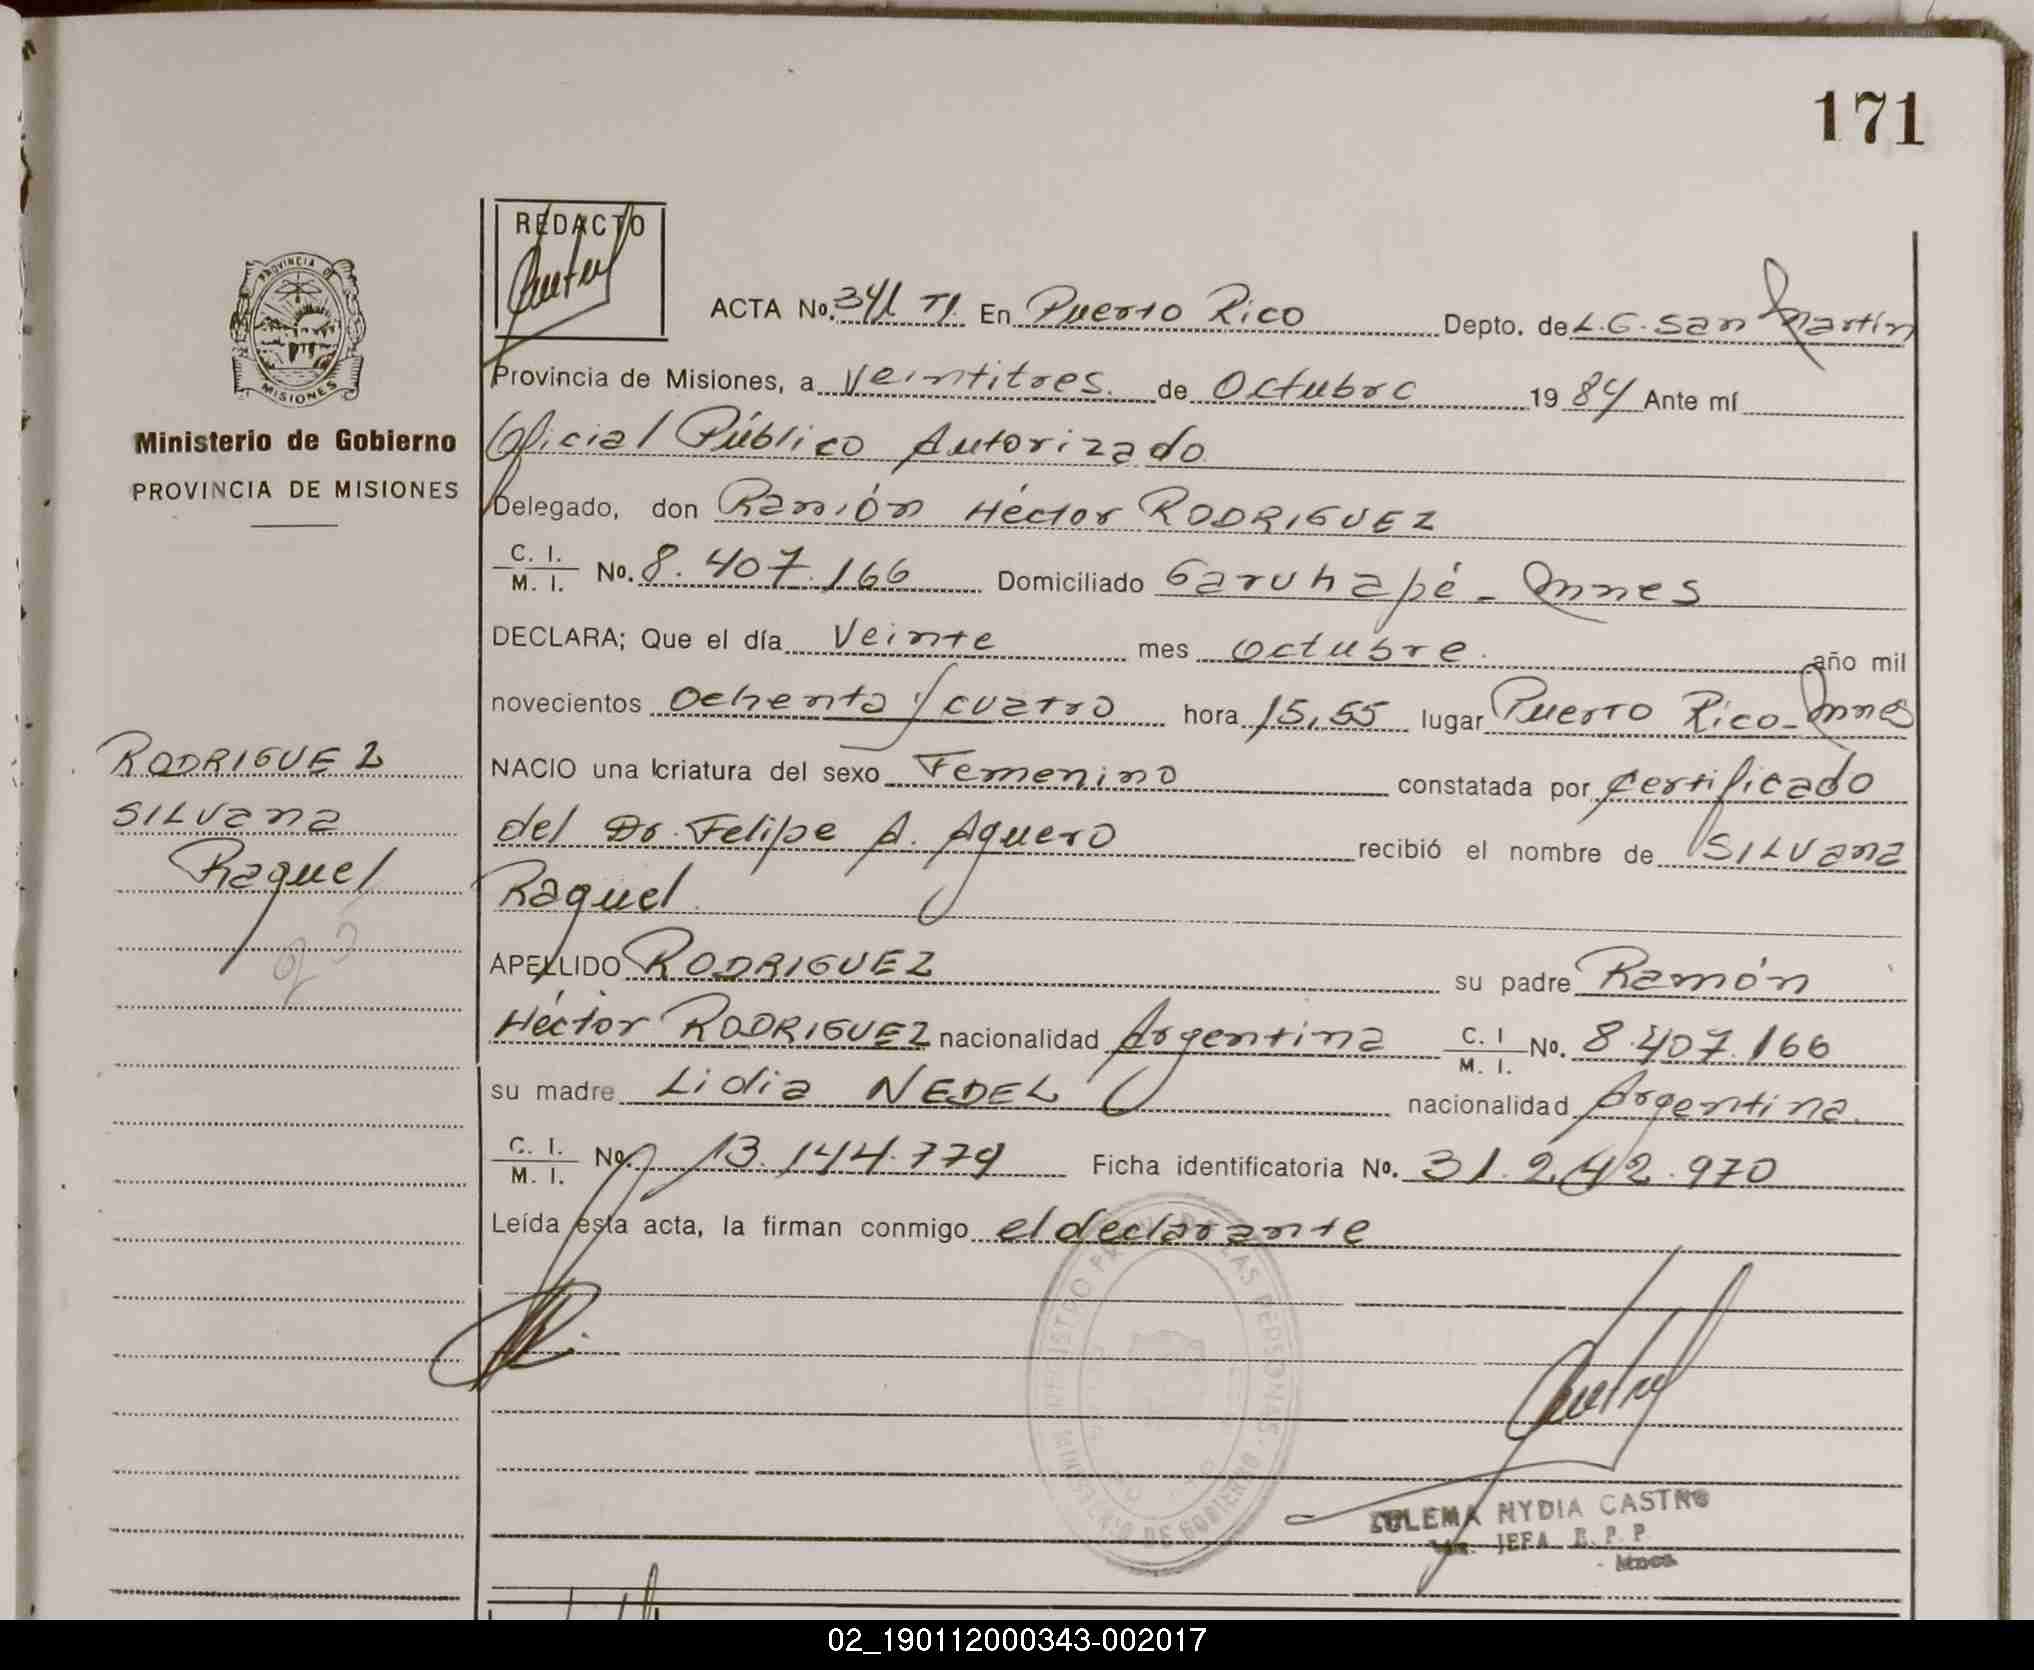 171
REDACTO
PROVINCIA DE
MISIONES
Ministerio de Gobierno
PROVINCIA DE MISIONES
ACTA No. 341 TI. En Puerto Rico Depto. de L.G. San Martín
Provincia de Misiones, a Veintitres. de Octubre 1984 Ante mí
Oficial Público Autorizado
Delegado, don Ramón Héctor RODRIGUEZ
C. I.
M. I. No. 8.407.166 Domiciliado Garuhapé - Mnes
DECLARA; Que el día Veinte mes octubre. año mil
novecientos ochenta y cuatro hora 15,55 lugar Puerto Rico - Mnes
NACIO una criatura del sexo Femenino constatada por certificado
del Dr. Felipe A. Aguero recibió el nombre de SILVana
Raquel
APELLIDO RODRIGUEZ su padre Ramón
Héctor RODRIGUEZ nacionalidad Argentina C. I
M. I. No. 8.407.166
su madre Lidia NEDEL nacionalidad Argentina.
C. I.
M. I. No. 13.144.779 Ficha identificatoria No. 31.242.970
Leída esta acta, la firman conmigo el declarante
RODRIGUEZ
SILVana
Raquel
ZULEMA NYDIA CASTRO
JEFA R. P. P.
02_190112000343-002017